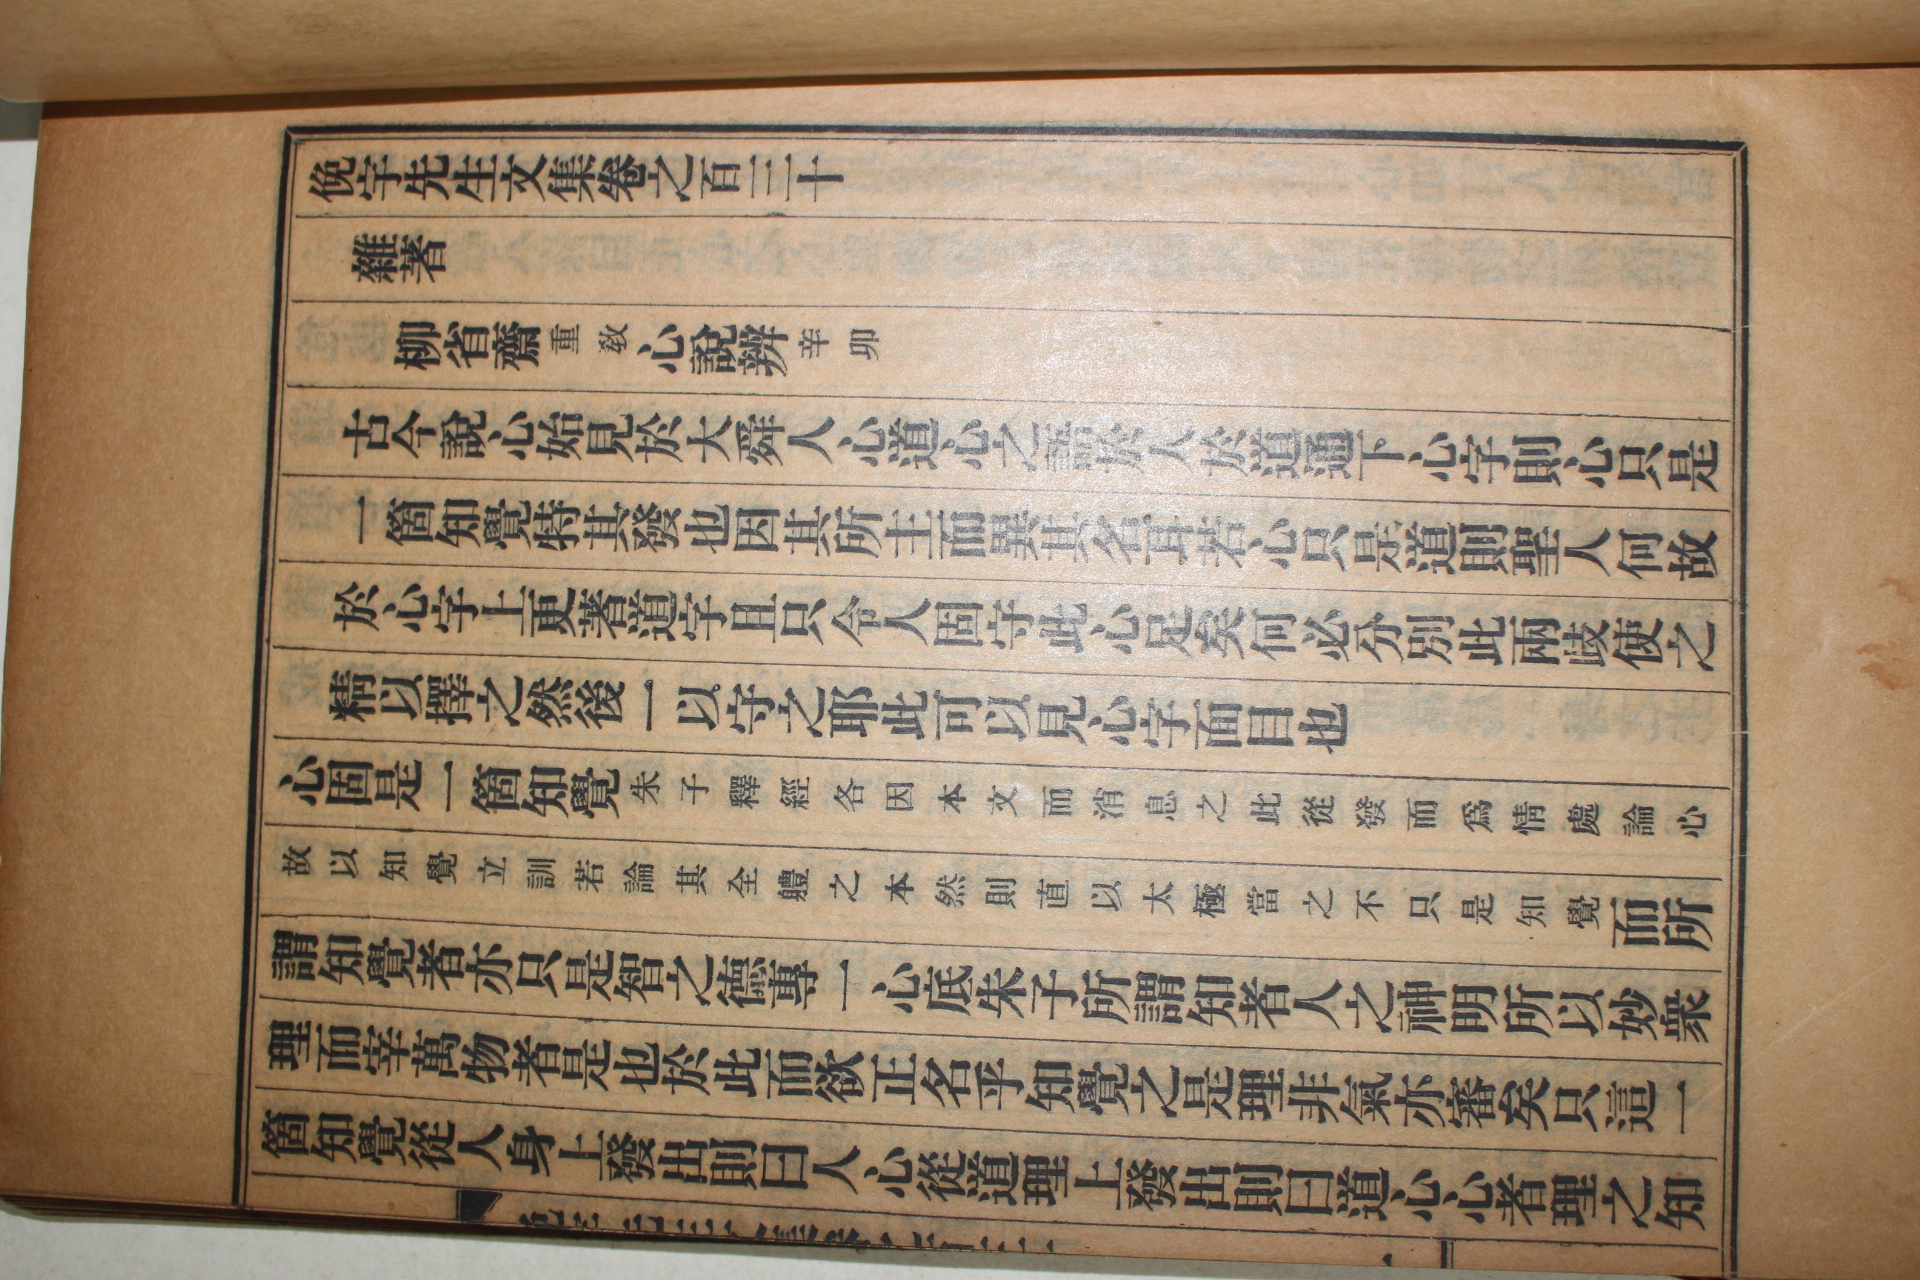 俛宇先生文集卷之百三十
雜著
柳省齋重敎心說辨辛卯
古今說心始見於大舜人心道心之語於人於道通下心字則心只是
一箇知覺特其發也因其所主而異其名耳若心只是道則聖人何故
於心字上更著道字且只令人固守此心足矣何必分別此兩歧使之
精以擇之然後一以守之耶此可以見心字面目也
心固是一箇知覺朱子釋經各因本文而消息之此從發而爲情處論心
故以知覺立訓若論其全軆之本然則直以太極當之不只是知覺而所
謂知覺者亦只是智之德專一心底朱子所謂知者人之神明所以妙衆
理而宰萬物者是也於此而欲正名乎知覺之是理非氣亦審矣只這一
箇知覺從人身上發出則曰人心從道理上發出則曰道心心者理之知